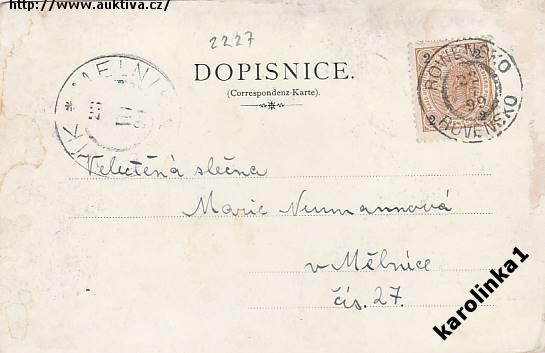 http://www.auktiva.cz/
2227
DOPISNICE.
(Correspondenz-Karte).
MELNIK
ROWENSKO
22
99
ROVENSKO
Velectěná slečna
Marie Neumannová
v Mělníce
čís. 27.
karolinka1